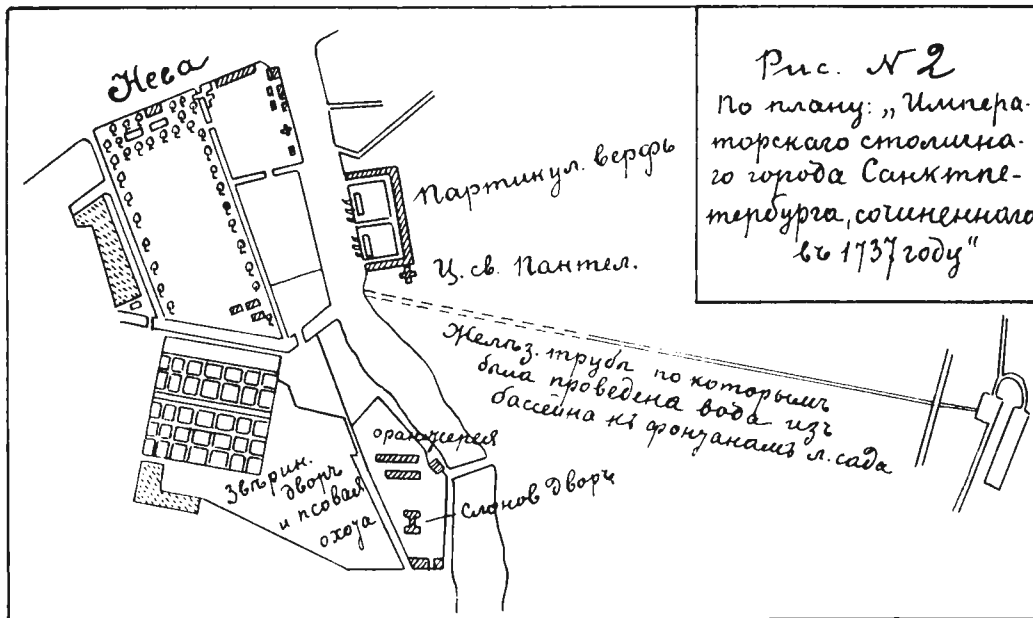 Нева
Рис. № 2
По плану: „Импера-
торскаго столична-
го города Санктпе-
тербурга, сочиненнаго
въ 1737 году“
Партикул. верфь
Ц. св. Пантел.
Желѣз. трубы по которымъ
была проведена вода изъ
бассейна къ фонтанамъ л. сада
оранжерея
Слонов дворъ
Звѣрин.
дворъ
и псовая
охота